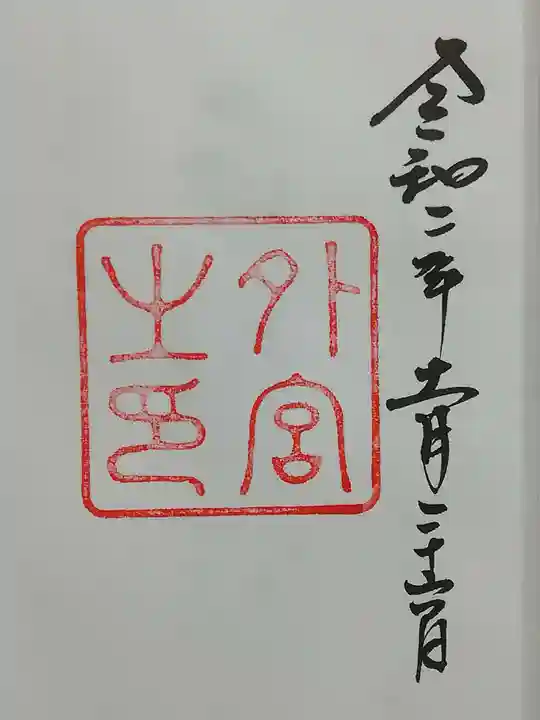 令和二年十一月二十二日
外宮
之印